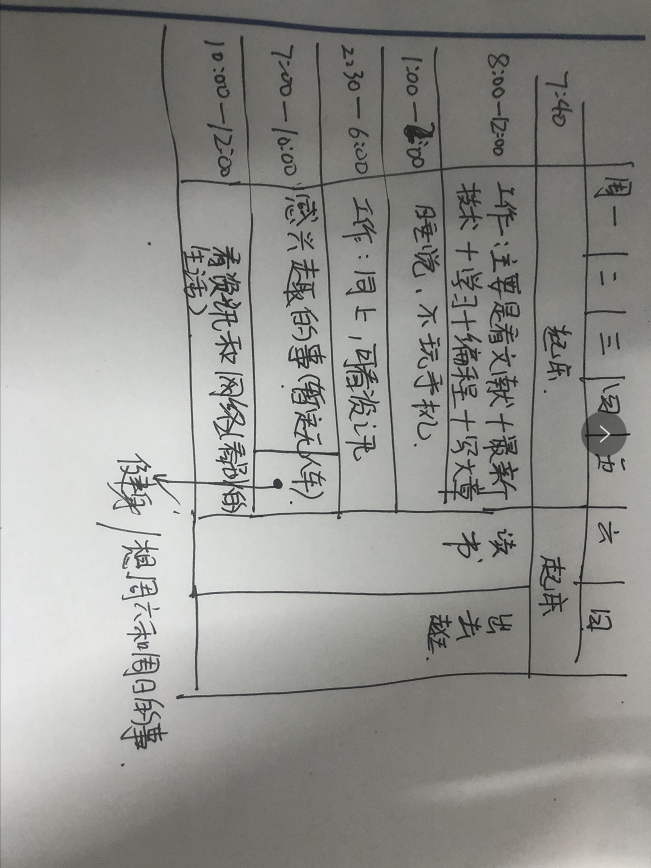 周一 二 三 四 五 六 日
7:40 起床. 起床
8:00-12:00 工作:主要是看文献+最新
技术+学习+编程+写文章
1:00-2:00 睡觉,不玩手机.
2:30-6:00 工作:同上,可看资讯
7:00-10:00 感兴趣的事(暂定无人车).
10:00-12:00 看资讯和网络(看别的
生活)
读书
出去逛.
健身/想周六和周日的事.